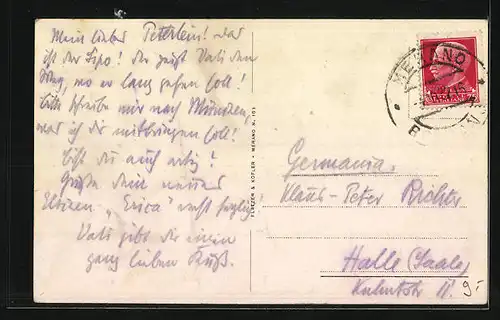 Mein lieber Peterlein! Das
ist der Sepo! der zeigt Vati den
Weg, wo er lang gehen soll!
Bitte schreibe mir nach München,
was ich dir mitbringen soll!
Bist du auch artig?
Grüße deine
"Erica" recht herzlich
Vati gibt dir einen
ganz lieben Kuß.
MERANO
FLENZER & KOFLER • MERANO N. 103
Germania.
Klaus-Peter Richter
Halle (Saale)
11
9-